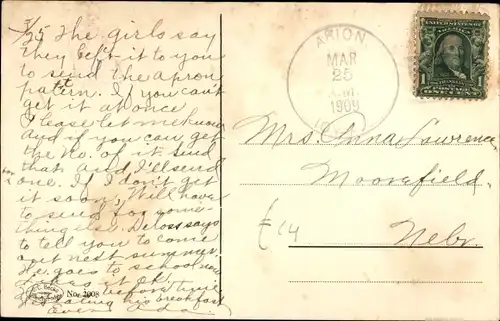 3/25 The girls say
they left it to you
to send the apron
patern. If you can't
get it at once
Please let me know
and if you can get
the No. of it send
that and I'll send
one. If I don't get
it soon, Will have
to send for some-
thing else. Deloss says
to tell you to come
out next summer.
He goes to school now
likes it O.K.
before time
eating his breakfast
even Ada
No. 2008
ARION,
MAR
25
A.M.
1909
UNITED STATES OF AMERICA
1 1
POSTAGE
ONE CENT
Mrs. Anna Lawrence
Moorefield,
£14
Nebr.